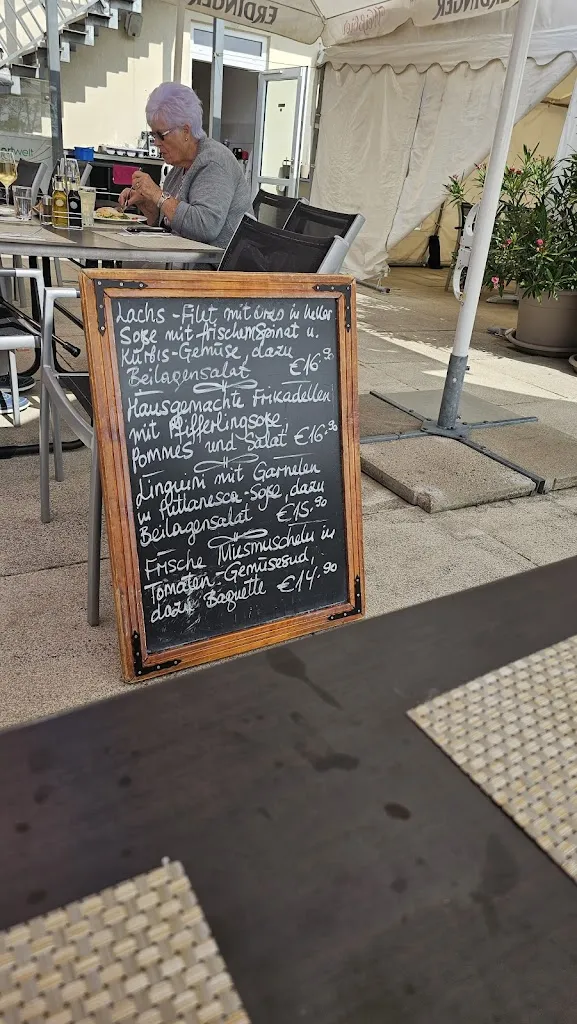 ERDINGER
ERDINGER
welt
Lachs-Filet mit in heller
Soße mit frischem Spinat u.
Kürbis-Gemüse, dazu
Beilagensalat €16.90
Hausgemachte Frikadellen
mit Pfifferlingsoße,
Pommes und Salat €16.90
Linguini mit Garnelen
in Puttanesca-Soße, dazu
Beilagensalat €15.90
Frische Miesmuscheln in
Tomaten-Gemüsesud,
dazu Baguette €14.90